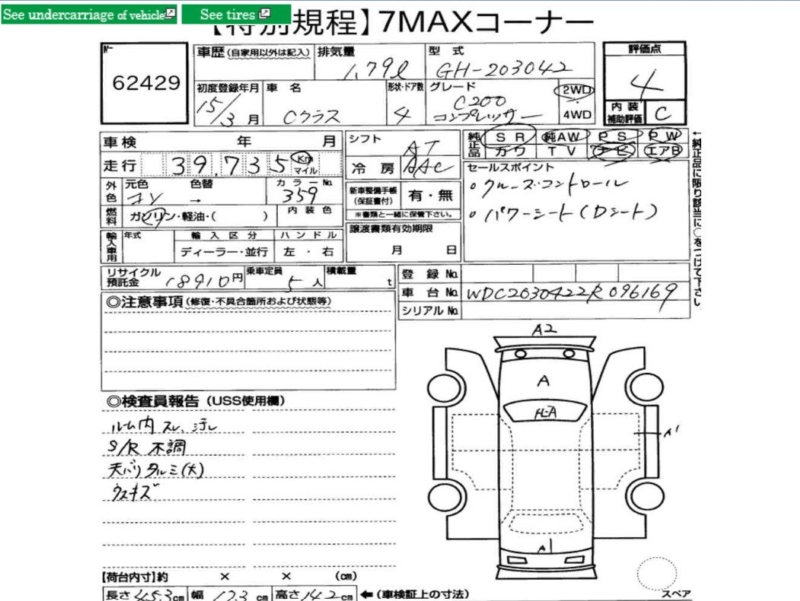 See undercarriage of vehicle
See tires
【特別規程】7MAXコーナー
No
62429
車歴(自家用以外は記入)
排気量
1,79ℓ
型式
GH-203042
評価点
4
初度登録年月
15/3月
車名
Cクラス
形状・ドア数
4
グレード
C200
コンプレッサー
2WD
4WD
内装
補助評価
C
車検 年 月
走行 39,735 Km マイル
シフト
AT
冷房
AAC
純正品
SR 純AW PS PW
カワ TV ナビ エアB
外色
元色
コン
色替
→
カラーNo
359
燃料
ガソリン・軽油・( )
内装色
新車整備手帳
(保証書付)
有・無
※書類と一緒に保管下さい。
セールスポイント
・クルーズ・コントロール
・パワーシート(Dシート)
←純正品に限り該当に○をつけて下さい
輸入車用
年式
輸入区分
ハンドル
ディーラー・並行
左・右
譲渡書類有効期限
月 日
リサイクル
預託金
18910円
乗車定員
5人
積載量
t
登録No.
車台No.
WDC2030422R096169
シリアルNo.
◎注意事項(修復・不具合箇所および状態等)
◎検査員報告(USS使用欄)
ルーム内 スレ、汚レ
S/R 不調
天バリ タルミ(大)
ウスキズ
A2
A
A
A1
【荷台内寸】約 × × (cm)
長さ453cm 幅 173cm 高さ142cm ←(車検証上の寸法)
スペア